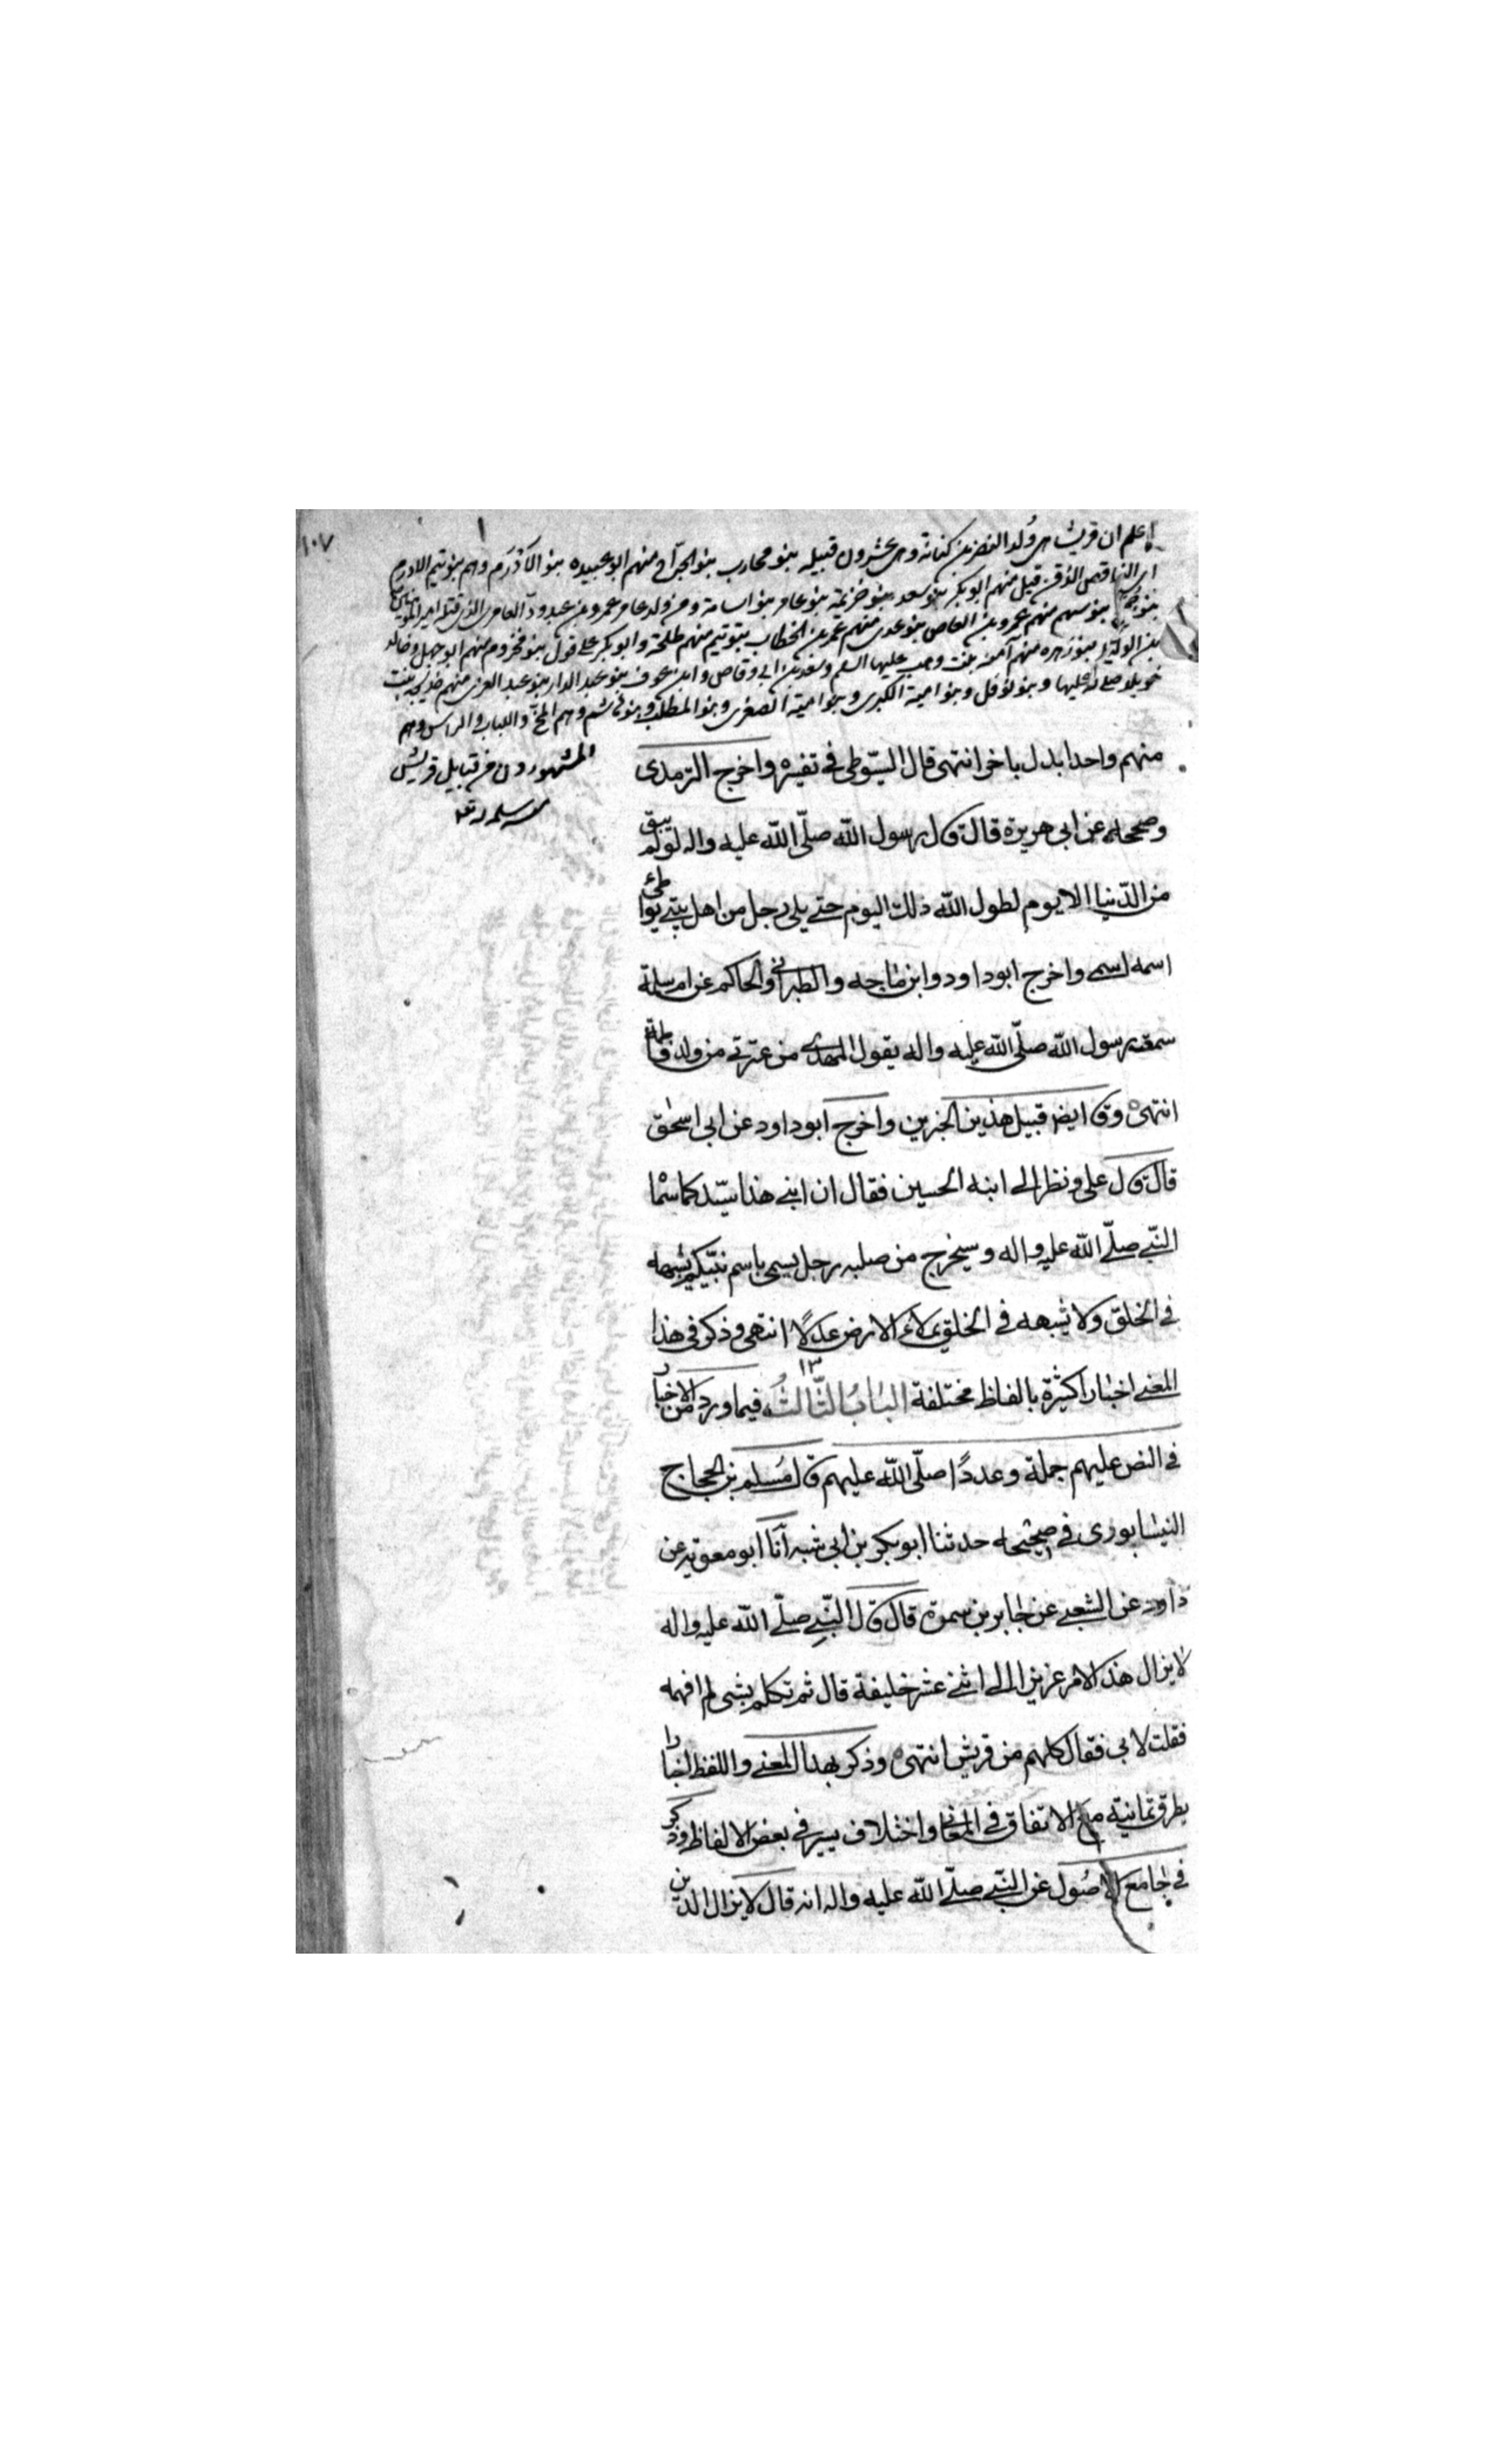 ١٠٧
اعلم ان قريشا هى وُلد النضر بن كنانة وهى عشرون قبيله بنو محارب بنو الجرّاح منهم ابو عبيده بنو الادرم وهم بنو تيم الادرم
اى الناقص الذقن قيل منهم ابو بكر بنو سعد بنو خزيمة بنو عامر بنو اسامة ومن ولد عامر عمرو بن عبدودّ العامرى الذى قتله امير المؤمنين
بنو سهم منهم عمرو بن العاص بنو عدى منهم عمر بن الخطاب بنو تيم منهم طلحة وابو بكر على قول بنو مخزوم منهم ابو جهل وخالد
بن الوليد بنو زهره منهم آمنه بنت وهب عليها السلم وسعد بن ابى وقاص وابن عوف بنو عبد الدار بنو عبد العزى منهم خديجه بنت
خويلد عليها وبنو نوفل وبنو امية الكبرى وبنو امية الصغرى وبنو المطلب وبنو هاشم وهم المخّ واللباب والراس وهم
المشهورون من قبايل قريش
منهم واحدا بدل باخر انتهى قال السيّوطى فى تفسيره واخرج الترمذى
وصححه عن ابى هريرة قال قال رسول اللّه صلّى اللّه عليه واله لو لم يبق
من الدّنيا الا يوم لطول اللّه ذلك اليوم حتى يلى رجل من اهل بيتى يواطئ
اسمه اسمى واخرج ابو داود وابن ماجه والطبرانى والحاكم عن ام سلمة
سمعت رسول اللّه صلّى اللّه عليه واله يقول المهدى من عترتى من ولد فاطمة
انتهى وق ايض قبيل هذين الخبرين واخرج ابو داود عن ابى اسحٰق
قال قال على ونظر الى ابنه الحسين فقال ان ابنى هذا سيّد كما سمّا
النّبى صلّى اللّه عليه واله وسيخرج من صلبه رجل يسمى باسم نبيّكم يشبهه
فى الخلق ولا يشبهه فى الخلق يملاء الارض عدلًا انتهى وذكر فى هذا
المعنى اخبارا كثيرة بالفاظ مختلفة البٰابُ الثّٰالثُ فيما ورد من الاخبار
١٣
فى النص عليهم جملة وعددًا صلّى اللّه عليهم قال مُسلم بن الحجاج
النيشابورى فى صحيحه حدثنا ابو بكر بن ابى شيبه انا ابو معوية عن
داود عن الشعبى عن جٰابر بن سمرة قال قال النّبى صلّى اللّه عليه واله
لا يزال هذا الامر عزيزا الى اثنى عشر خليفة قال ثم تكلم بشى لم افهمه
فقلت لابى فقال كلهم من قريش انتهى وذكر بهذا المعنى واللفظ اخبارا
بطرق ثمانية مع الاتفاق فى المعانى واختلاف يسير فى بعض الالفاظ وذكر
فى جٰامع الاصُول عن النّبى صلّى اللّه عليه واله انه قال لا يزال الدين